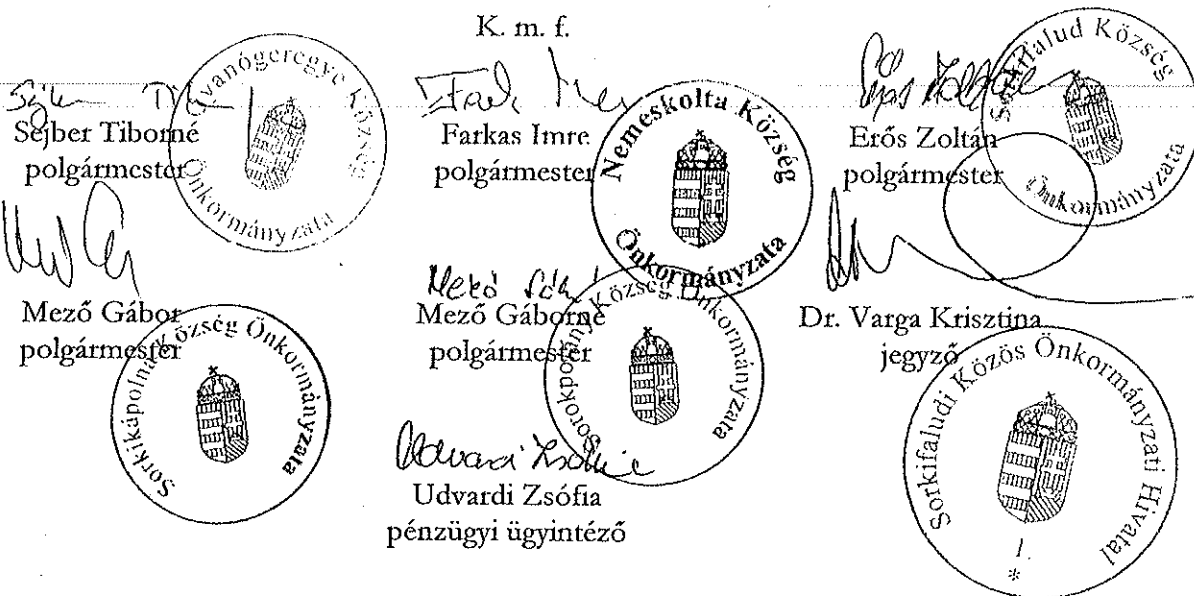 K. m. f.
Sejber Tiborné
polgármester
Gyanógeregye Község Önkormányzata
Farkas Imre
polgármester
Nemeskolta Község Önkormányzata
Erős Zoltán
polgármester
Sorkifalud Község Önkormányzata
Mező Gábor
polgármester
Sorkikápolna Község Önkormányzata
Mező Gáborné
polgármester
Sorokpolány Község Önkormányzata
Dr. Varga Krisztina
jegyző
Sorkifaludi Közös Önkormányzati Hivatal
1.
*
Udvardi Zsófia
pénzügyi ügyintéző